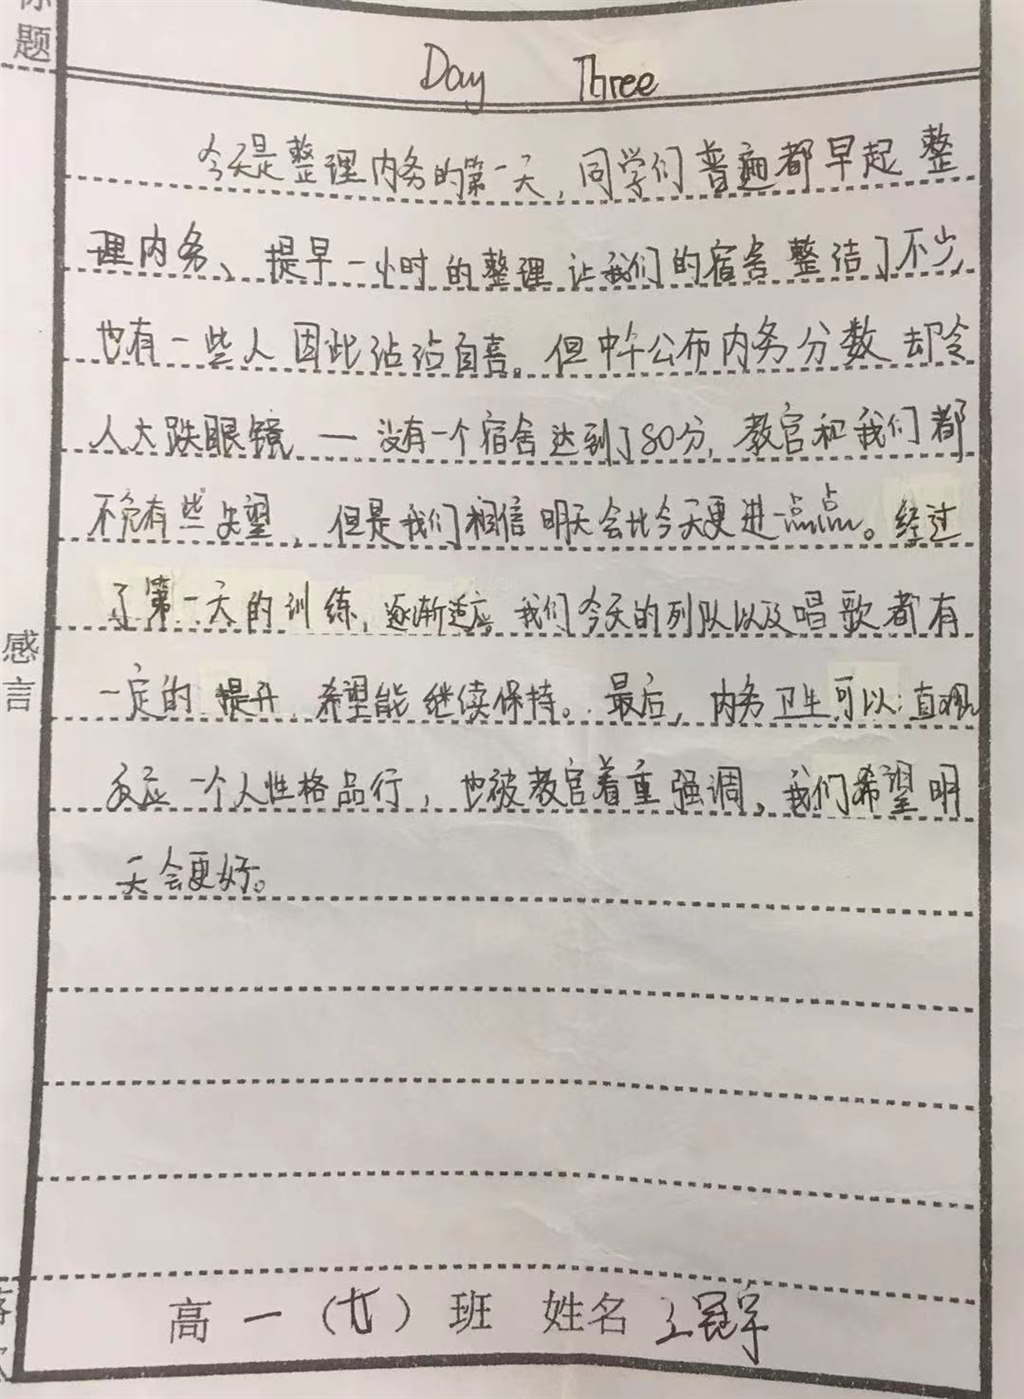 标题
Day Three
今天是整理内务的第一天,同学们普遍都早起整
理内务、提早一小时的整理让我们的宿舍整洁了不少,
也有一些人因此沾沾自喜。但中午公布内务分数却令
人大跌眼镜—没有一个宿舍达到了80分,教官和我们都
不免有些失望,但是我们相信明天会比今天更进一点点。经过
了第一天的训练,逐渐适应,我们今天的列队以及唱歌都有
一定的提升,希望能继续保持。最后,内务卫生可以直观
反应一个人性格品行,也被教官着重强调,我们希望明
天会更好。
感言
高一(七)班 姓名 王冠宇